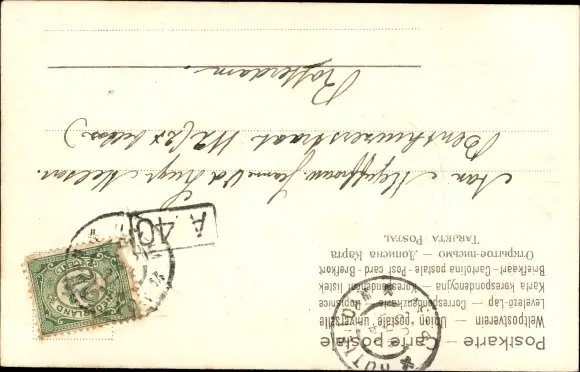 Postkarte — Carte postale
Weltpostverein — Union postale universelle
Levelező-Lap — Correspondenzkarte
Karta korespondencyjna — Korespondenční lístek
Briefkaart — Cartolina postale — Post card — Brefkort
Открытое письмо — Дописна Карта
TARJETA POSTAL
Aan Mejuffrouw Jeanne v/d
Benthuizerstraat 112 (2x bellen)
Rotterdam.
NEDERLAND
2½
A.
40